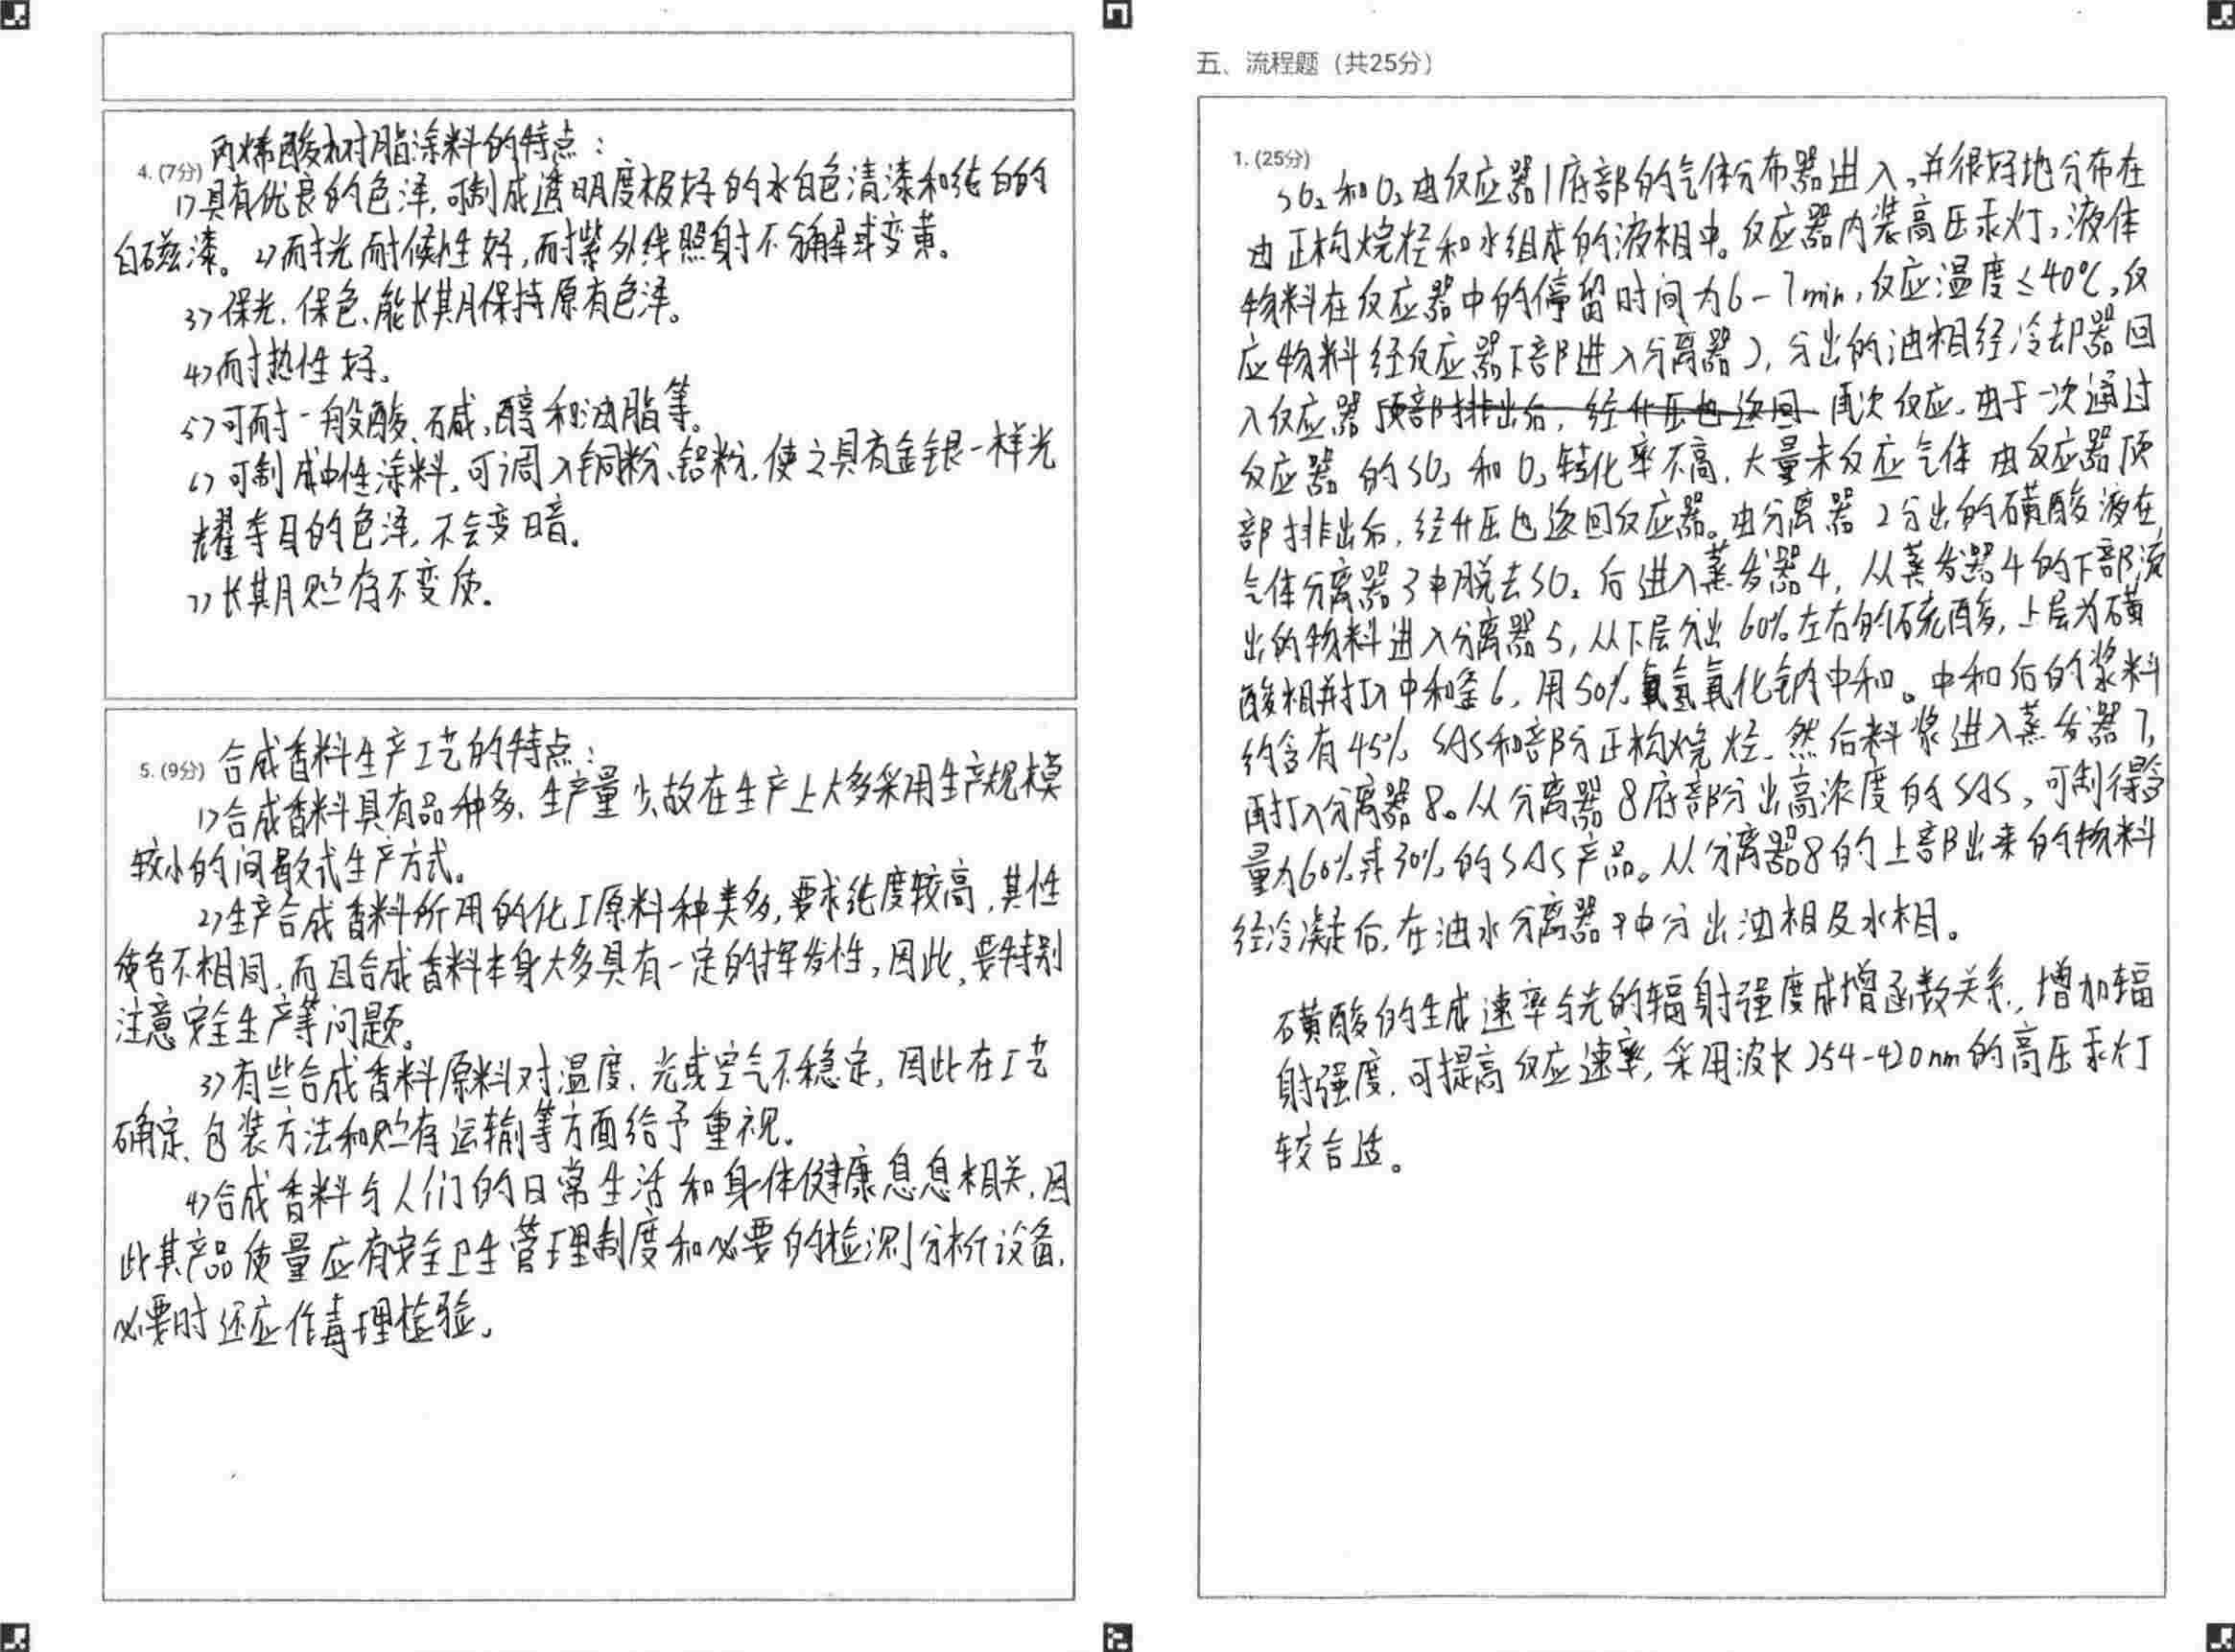 4. (7分) 丙烯酸树脂涂料的特点：
1>具有优良的色泽,可制成透明度极好的水白色清漆和纯白的
白磁漆。2>耐光耐候性好,耐紫外线照射不分解或变黄。
3>保光、保色、能长期保持原有色泽。
4>耐热性好。
5>可耐一般酸、碱,醇和油脂等。
6>可制成中性涂料,可调入铜粉、铝粉,使之具有金银一样光
耀夺目的色泽,不会变暗。
7>长期贮存不变质.
5. (9分) 合成香料生产工艺的特点：
1>合成香料具有品种多、生产量少,故在生产上大多采用生产规模
较小的间歇式生产方式。
2>生产合成香料所用的化工原料种类多,要求纯度较高,其性
质各不相同,而且合成香料本身大多具有一定的挥发性,因此,要特别
注意安全生产等问题。
3>有些合成香料原料对温度、光或空气不稳定,因此在工艺
确定、包装方法和贮存运输等方面给予重视。
4>合成香料与人们的日常生活和身体健康息息相关,因
此其产品质量应有安全卫生管理制度和必要的检测分析设备,
必要时还应作毒理检验。
五、流程题（共25分）
1. (25分)
SO₂和O₂由反应器1底部的气体分布器进入,并很好地分布在
由正构烷烃和水组成的液相中。反应器内装高压汞灯,液体
物料在反应器中的停留时间为6-7min,反应温度≤40℃,反
应物料经反应器下部进入分离器2,分出的油相经冷却器回
入反应器 顶部排出后,经升压也返回 再次反应.由于一次通过
反应器的SO₂和O₂转化率不高,大量未反应气体由反应器顶
部排出后,经升压也返回反应器。由分离器2分出的磺酸液在
气体分离器3中脱去SO₂后进入蒸发器4,从蒸发器4的下部流
出的物料进入分离器5,从下层分出60%左右的硫酸,上层为磺
酸相并打入中和釜6,用50%氢氧化钠中和。中和后的浆料
约含有45% SAS和部分正构烷烃.然后料浆进入蒸发器7,
再打入分离器8。从分离器8底部分出高浓度的SAS,可制得含
量为60%或30%的SAS产品。从分离器8的上部出来的物料
经冷凝后,在油水分离器9中分出油相及水相。
磺酸的生成速率与光的辐射强度成增函数关系,增加辐
射强度,可提高反应速率,采用波长254-420nm的高压汞灯
较合适。